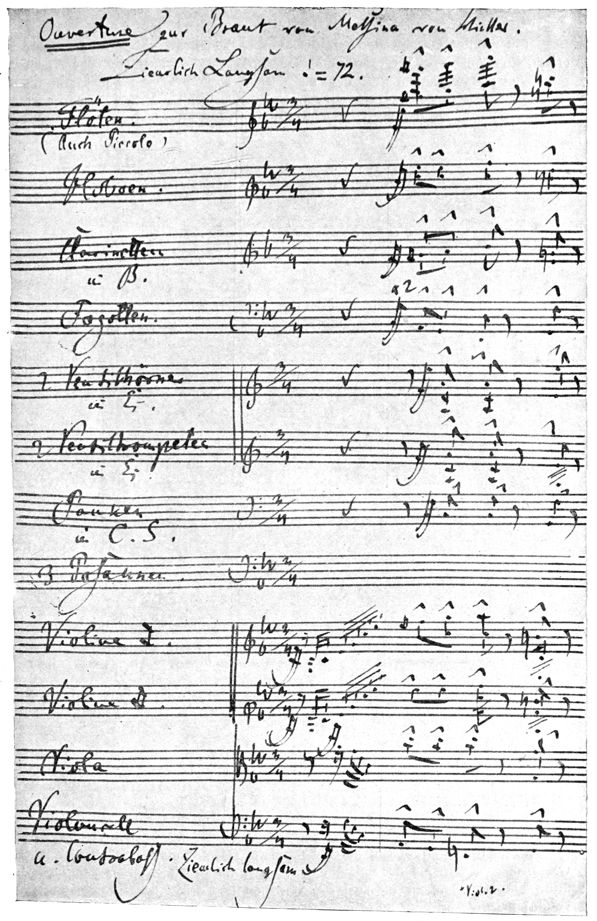 Ouverture zur Braut von Messina von Schiller.
Ziemlich Langsam ♩ = 72.
Flöten.
(Auch Piccolo)
Hoboen.
Clarinetten
in B.
Fagotten.
2 Ventilhörner
in Es.
2 Ventiltrompeten
in Es.
Pauken
in C. G.
3 Posaunen.
Violine I.
Violine II.
Viola
Violoncell
u. Contrabaß.
Ziemlich langsam